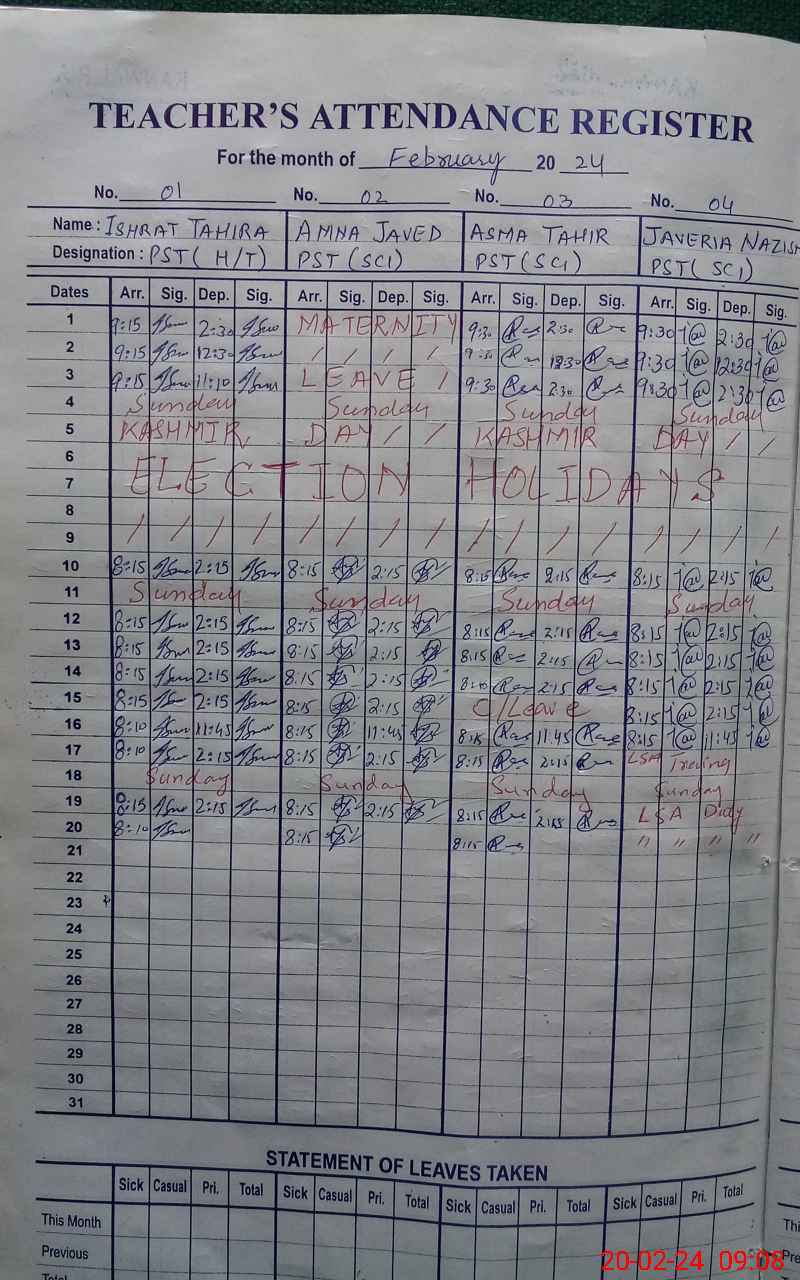 TEACHER'S ATTENDANCE REGISTER
For the month of February 20 24
No. 01 No. 02 No. 03 No. 04
Name : ISHRAT TAHIRA AMNA JAVED ASMA TAHIR JAVERIA NAZISH
Designation : PST( H/T) PST(SCI) PST(SCI) PST( SCI)
Dates Arr. Sig. Dep. Sig. Arr. Sig. Dep. Sig. Arr. Sig. Dep. Sig. Arr. Sig. Dep. Sig.
1 9:15 2:30 MATERNITY 9:30 2:30 9:30 2:30
2 9:15 12:30 / / / / 9:30 12:30 9:30 12:30
3 9:15 11:10 LEAVE / 9:30 2:30 9:30 2:30
4 Sunday Sunday Sunday Sunday
5 KASHMIR DAY / / KASHMIR DAY / /
6
7 ELECTION HOLIDAYS
8
9 / / / / / / / / / / / / / / / /
10 8:15 2:15 8:15 2:15 8:15 2:15 8:15 2:15
11 Sunday Sunday Sunday Sunday
12 8:15 2:15 8:15 2:15 8:15 2:15 8:15 2:15
13 8:15 2:15 8:15 2:15 8:15 2:15 8:15 2:15
14 8:15 2:15 8:15 2:15 2:15 8:15 2:15
15 8:15 2:15 8:15 2:15 C/Leave 8:15 2:15
16 8:10 11:45 8:15 11:45 8:15 11.45 8:15 11:45
17 8:10 2:15 8:15 2:15 8:15 2:15 LSA
18 Sunday Sunday Sunday Sunday
19 8:15 2:15 8:15 2:15 8:15 LSA
20 8:10 8:15 8:15 " " " "
21
22
23
24
25
26
27
28
29
30
31
STATEMENT OF LEAVES TAKEN
Sick Casual Pri. Total Sick Casual Pri. Total Sick Casual Pri. Total Sick Casual Pri. Total
This Month
Previous
Total
20-02-24 09:08